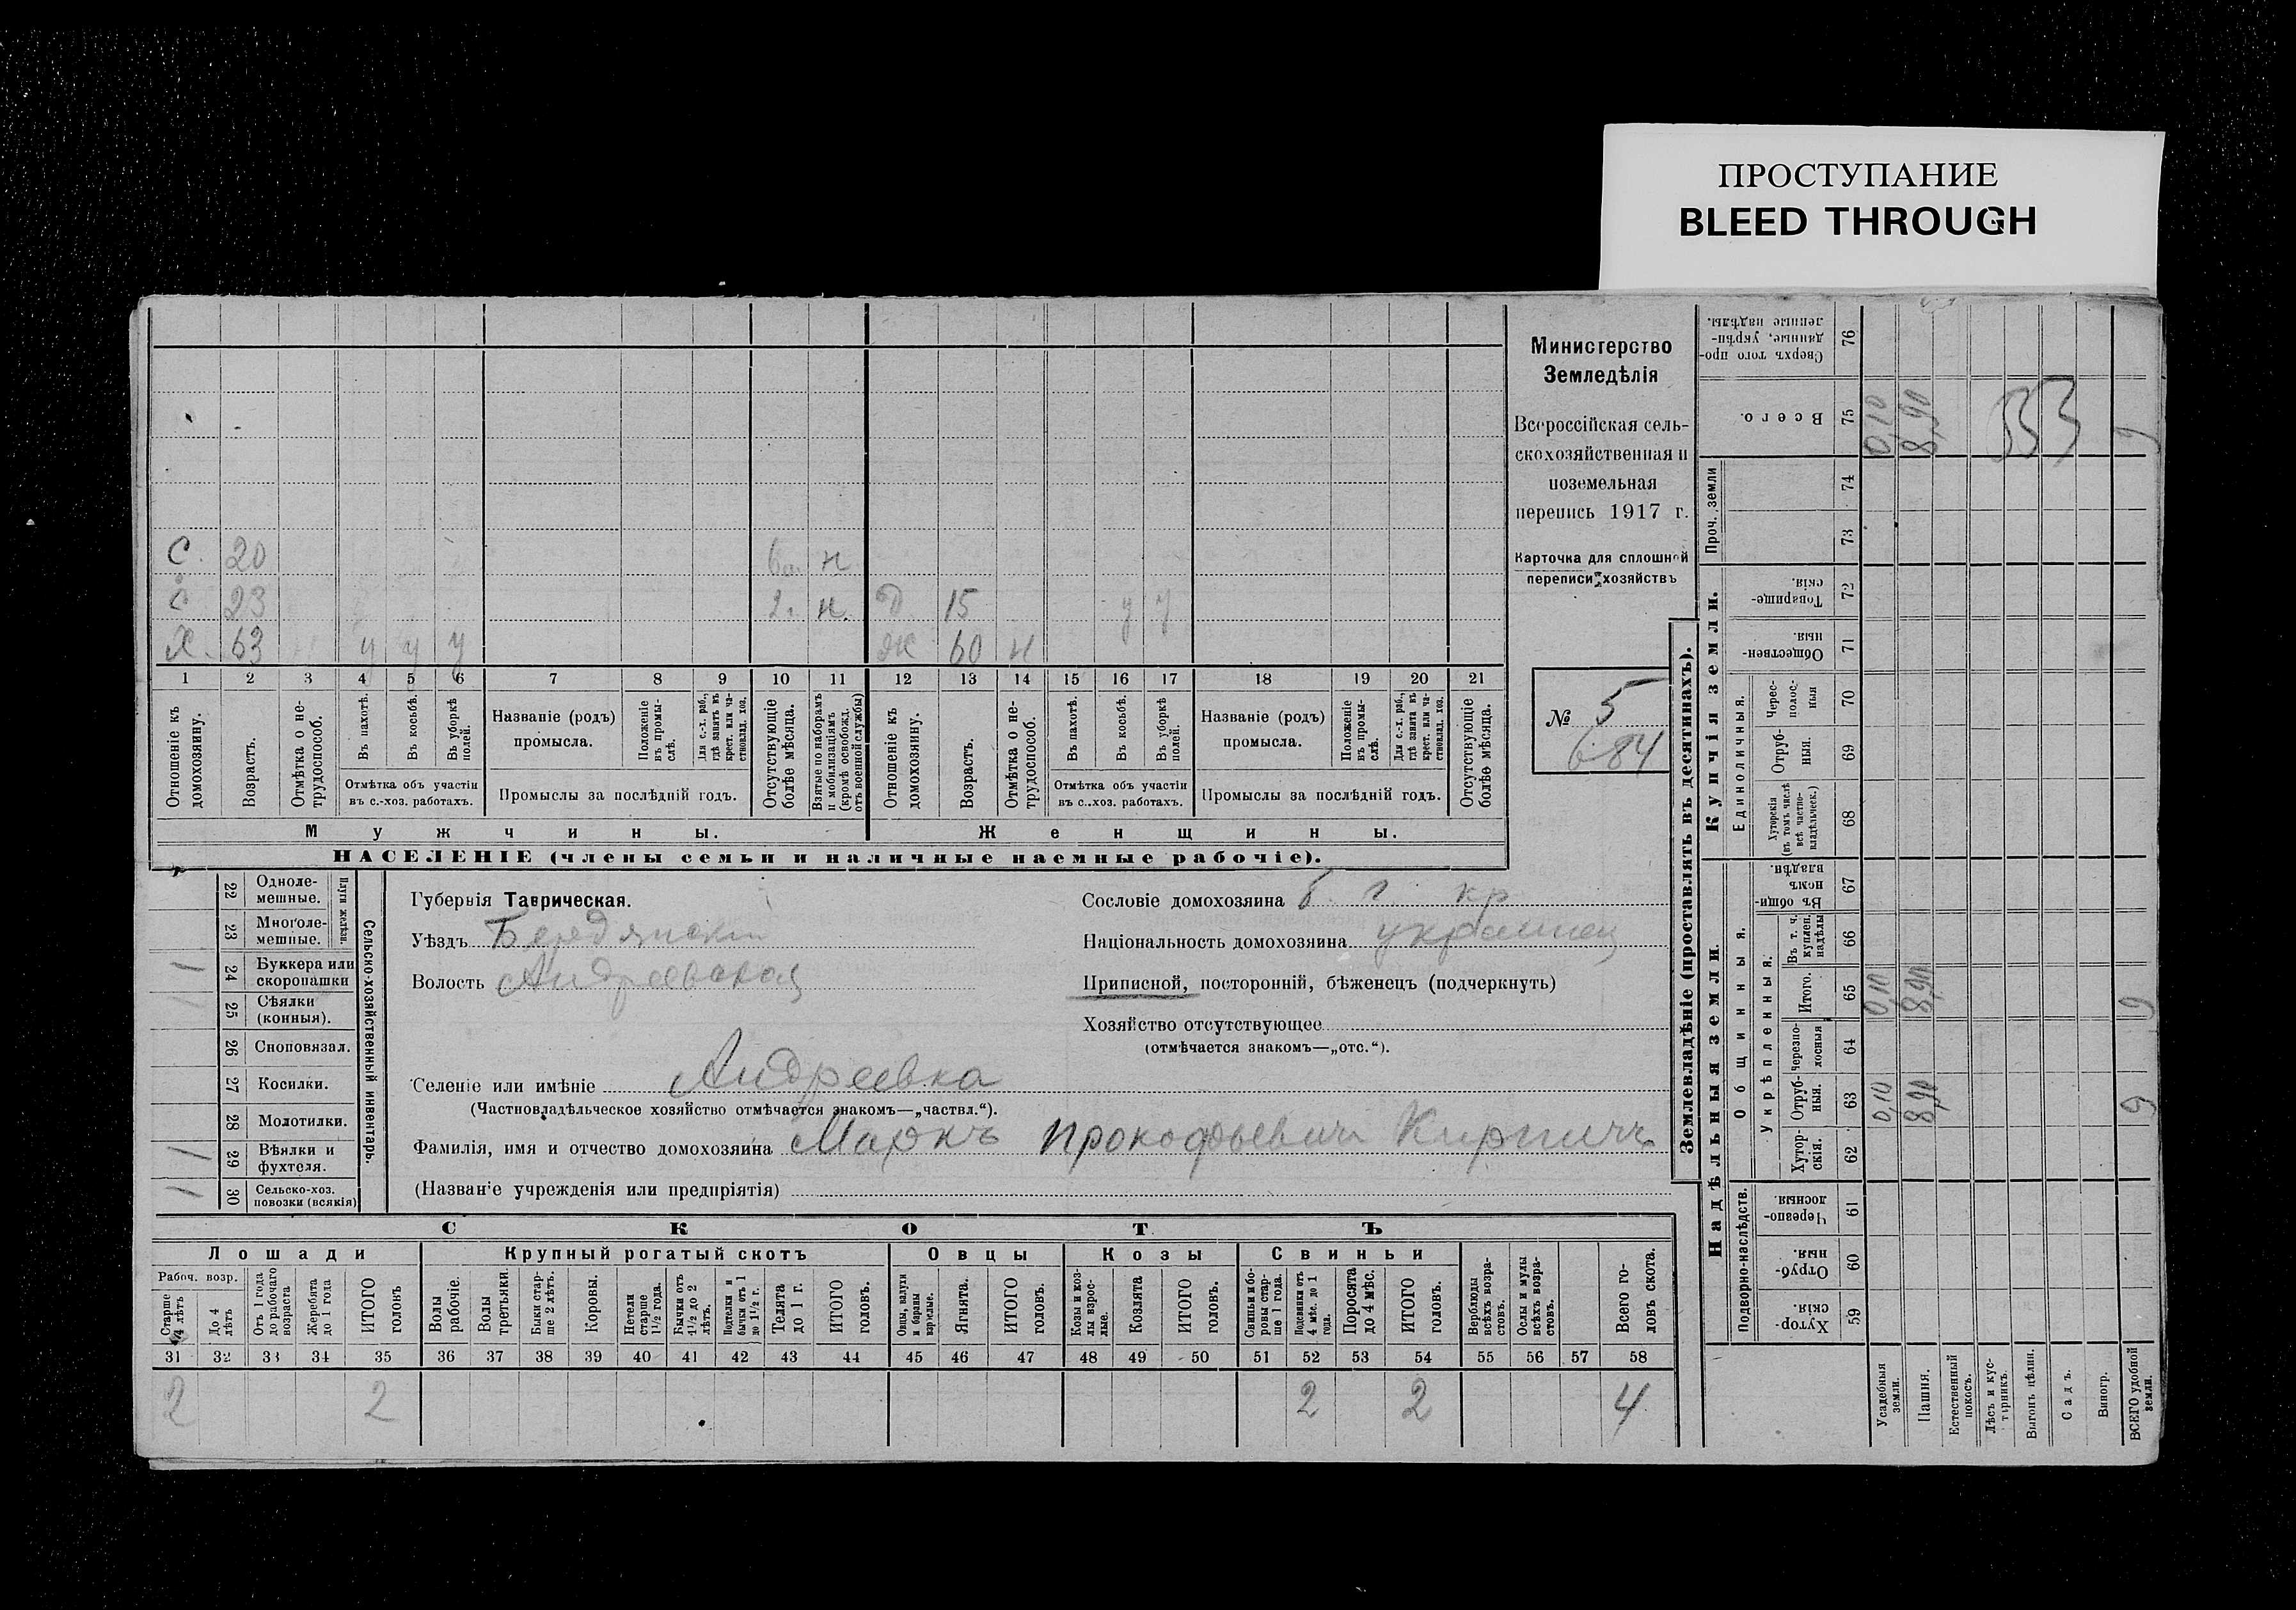 ПРОСТУПАНИЕ
BLEED THROUGH
Министерство
Земледѣлія
Всероссійская сель-
скохозяйственная и
поземельная
перепись 1917 г.
Карточка для сплошной
переписи хозяйствъ
№ 5
684
С. 20 н
С 23 2. н. Д. 15 у у
Х. 63 у у у Ж 60 н
1 2 3 4 5 6 7 8 9 10 11 12 13 14 15 16 17 18 19 20 21
Отношеніе къ домохозяину.
Возрастъ.
Отмѣтка о не-трудоспособ.
Въ пахотѣ.
Въ косьбѣ.
Въ уборкѣ полей.
Отмѣтка объ участіи
въ с.-хоз. работахъ.
Названіе (родъ)
промысла.
Положеніе въ промы-слѣ.
Для с.-х. раб., гдѣ занятъ въ крест. или ча-ствовлад. хоз.
Промыслы за послѣдній годъ.
Отсутствующіе болѣе мѣсяца.
Взятые по наборамъ и мобилизаціямъ (кромѣ освобожд. отъ военной службы)
Отношеніе къ домохозяину.
Возрастъ.
Отмѣтка о не-трудоспособ.
Въ пахотѣ.
Въ косьбѣ.
Въ уборкѣ полей.
Отмѣтка объ участіи
въ с..хоз. работахъ.
Названіе (родъ)
промысла.
Положеніе въ промы-слѣ.
Для с.-х. раб., гдѣ занята въ крест. или ча-ствовлад. хоз.
Промыслы за послѣдній годъ.
Отсутствующіе болѣе мѣсяца.
Мужчины. Женщины.
НАСЕЛЕНІЕ (члены семьи и наличные наемные рабочіе).
Сельско-хозяйственный инвентарь.
Плуги желѣзн.
22 Одноле-мешные.
23 Многоле-мешные.
1 24 Буккера или скоропашки
25 Сѣялки (конныя).
26 Сноповязал.
27 Косилки.
28 Молотилки.
1 29 Вѣялки и фухтеля.
1 30 Сельско-хоз. повозки (всякія)
Губернія Таврическая.
Уѣздъ Бердянскій
Волость Андреевская
Сословіе домохозяина б. г. кр
Національность домохозяина украинец
Приписной, посторонній, бѣженецъ (подчеркнуть)
Хозяйство отсутствующее
(отмѣчается знакомъ—„отс.“).
Селеніе или имѣніе Андреевка
(Частновладѣльческое хозяйство отмѣчается знакомъ—„частвл.“).
Фамилія, имя и отчество домохозяина Маркъ Прокофьевичъ Кирпичъ
(Названіе учрежденія или предпріятія)
СКОТЪ
Лошади Крупный рогатый скотъ Овцы Козы Свиньи
Рабоч. возр.
Старше 4 лѣтъ
До 4 лѣтъ
Отъ 1 года до рабочаго возраста
Жеребята до 1 года
ИТОГО головъ
Волы рабочіе.
Волы третьяки.
Быки стар-ше 2 лѣтъ.
Коровы.
Нетели старше 1½ года.
Бычки отъ 1½ до 2 лѣтъ.
Подтелки и бычки отъ 1 до 1½ г.
Телята до 1 г.
ИТОГО головъ.
Овцы, валухи и бараны взрослые.
Ягнята.
ИТОГО головъ.
Козы и коз-лы взрос-лые.
Козлята
ИТОГО головъ.
Свиньи и бо-ровы стар-ше 1 года.
Подсвинки отъ 4 мѣс. до 1 года.
Поросята до 4 мѣс.
ИТОГО головъ.
Верблюды всѣхъ возра-стовъ.
Ослы и мулы всѣхъ возра-стовъ.
Всего го-ловъ скота.
31 32 33 34 35 36 37 38 39 40 41 42 43 44 45 46 47 48 49 50 51 52 53 54 55 56 57 58
2 2 2 2 4
Землевладѣніе (проставлять въ десятинахъ).
Надѣльныя земли. Купчія земли. Проч. земли
Подворно-наслѣдств.
Общинныя.
Укрѣпленныя.
Единоличныя.
59 Хутор-скія.
60 Отруб-ныя.
61 Черезпо-лосныя.
62 Хутор-скія.
63 Отруб-ныя. 0,10 8,90 9
64 Черезпо-лосныя
65 Итого. 0,10 8,90 9
66 Въ т. ч. куплен. надѣлы
67 Въ общин-номъ владѣн.
68 Хуторскія (въ томъ числѣ всѣ частно-владѣльческ.)
69 Отруб-ныя.
70 Черес-полос-ныя
71 Обществен-ныя.
72 Товарище-скія.
73
74
75 Всего. 0,10 8,90 9
333
76 Сверхъ того про-данные, укрѣп-ленные надѣлы.
Усадебныя земли.
Пашня.
Естественный покосъ.
Лѣсъ и кус-тарникъ.
Выгонъ цѣлин.
Садъ.
Виногр.
ВСЕГО удобной земли.